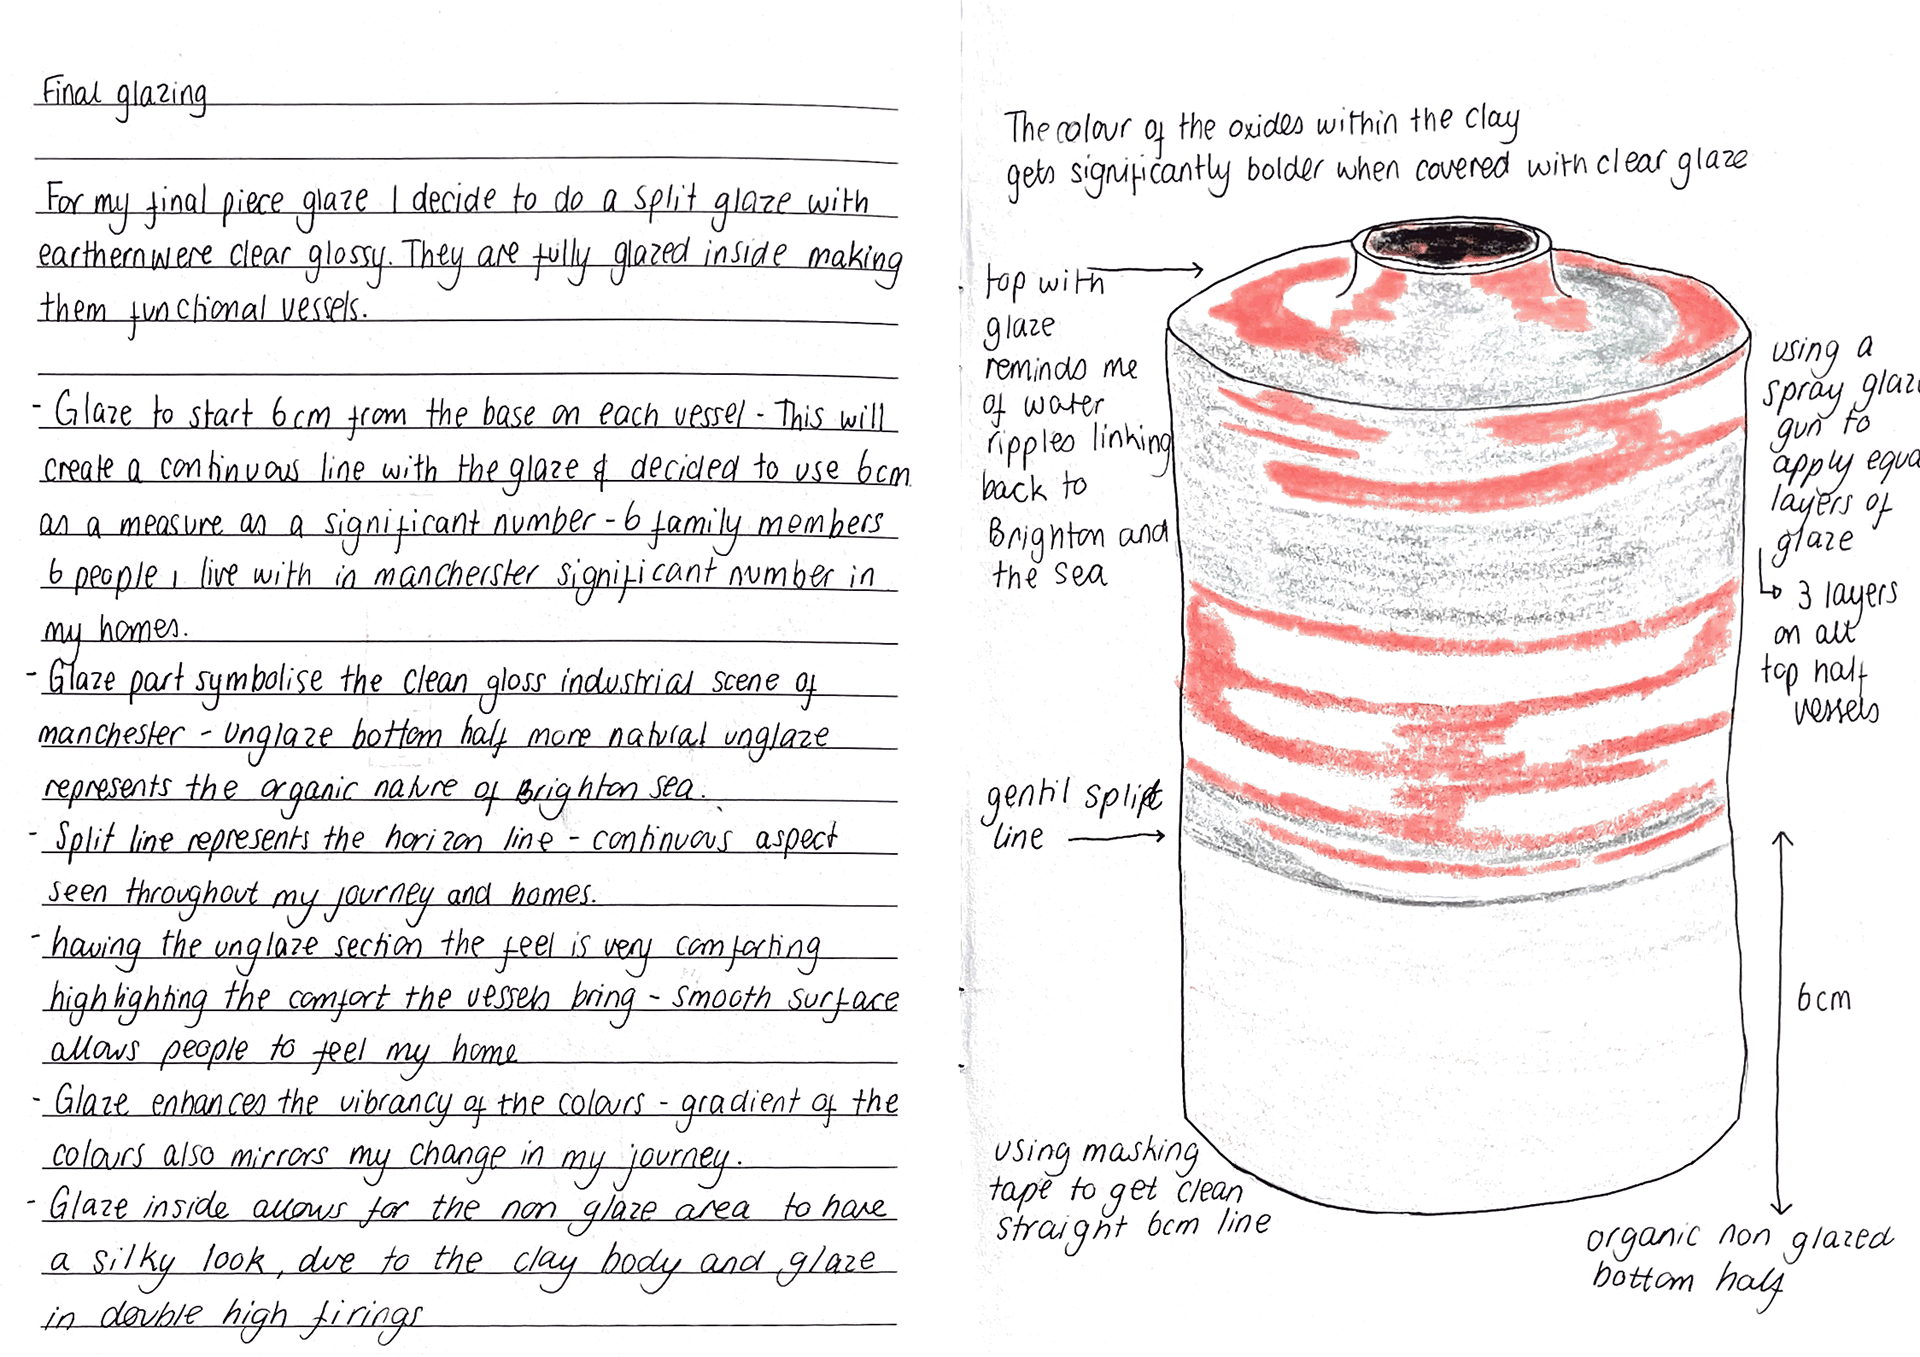 Final glazing
For my final piece glaze I decide to do a split glaze with
earthernwere clear glossy. They are fully glazed inside making
them functional vessels.
- Glaze to start 6cm from the base on each vessel - This will
create a continuous line with the glaze & decided to use 6cm
as a measure as a significant number - 6 family members
6 people I live with in mancherster significant number in
my homes.
- Glaze part symbolise the clean gloss industrial scene of
manchester - unglaze bottom half more natural unglaze
represents the organic nature of Brighton sea.
- Split line represents the horizon line - continuous aspect
seen throughout my journey and homes.
- having the unglaze section the feel is very comforting
highlighting the comfort the vessels bring - smooth surface
allows people to feel my home
- Glaze enhances the vibrancy of the colours - gradient of the
colours also mirrors my change in my journey.
- Glaze inside allows for the non glaze area to have
a silky look, due to the clay body and glaze
in double high firings
The colour of the oxides within the clay
gets significantly bolder when covered with clear glaze
top with
glaze
reminds me
of water
ripples linking
back to
Brighton and
the sea
using a
spray glaze
gun to
apply equa
layers of
glaze
↳ 3 layers
on all
top half
vessels
gentil split
line
6cm
using masking
tape to get clean
straight 6cm line
organic non glazed
bottom half